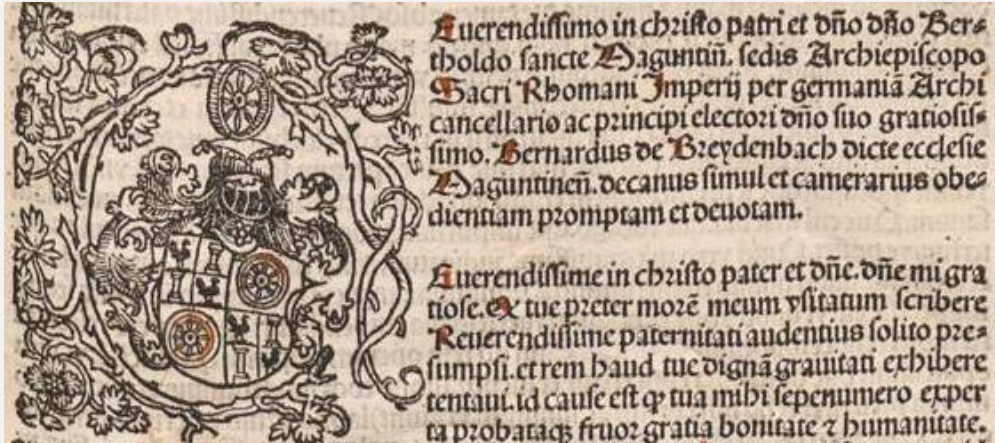 Euerendissimo in christo patri et dño dño Ber⸗
tholdo sancte Maguntiñ. sedis Archiepiscopo
Sacri Rhomani Imperij per germaniã Archi
cancellario ac principi electori dño suo gratiosis⸗
simo. Bernardus de Breydenbach dicte ecclesie
Maguntineñ. decanus simul et camerarius obe⸗
dientiam promptam et deuotam.
Euerendissime in christo pater et dñe. dñe mi gra
tiose. ex tue preter morẽ meum vsitatum scribere
Reuerendissime paternitati audentius solito pre⸗
sumpsi. et rem haud tue dignã grauitati exhibere
tentaui. id cause est ꝙ tua mihi sepenumero exper
ta probataqꝫ fruor gratia bonitate ⁊ humanitate.